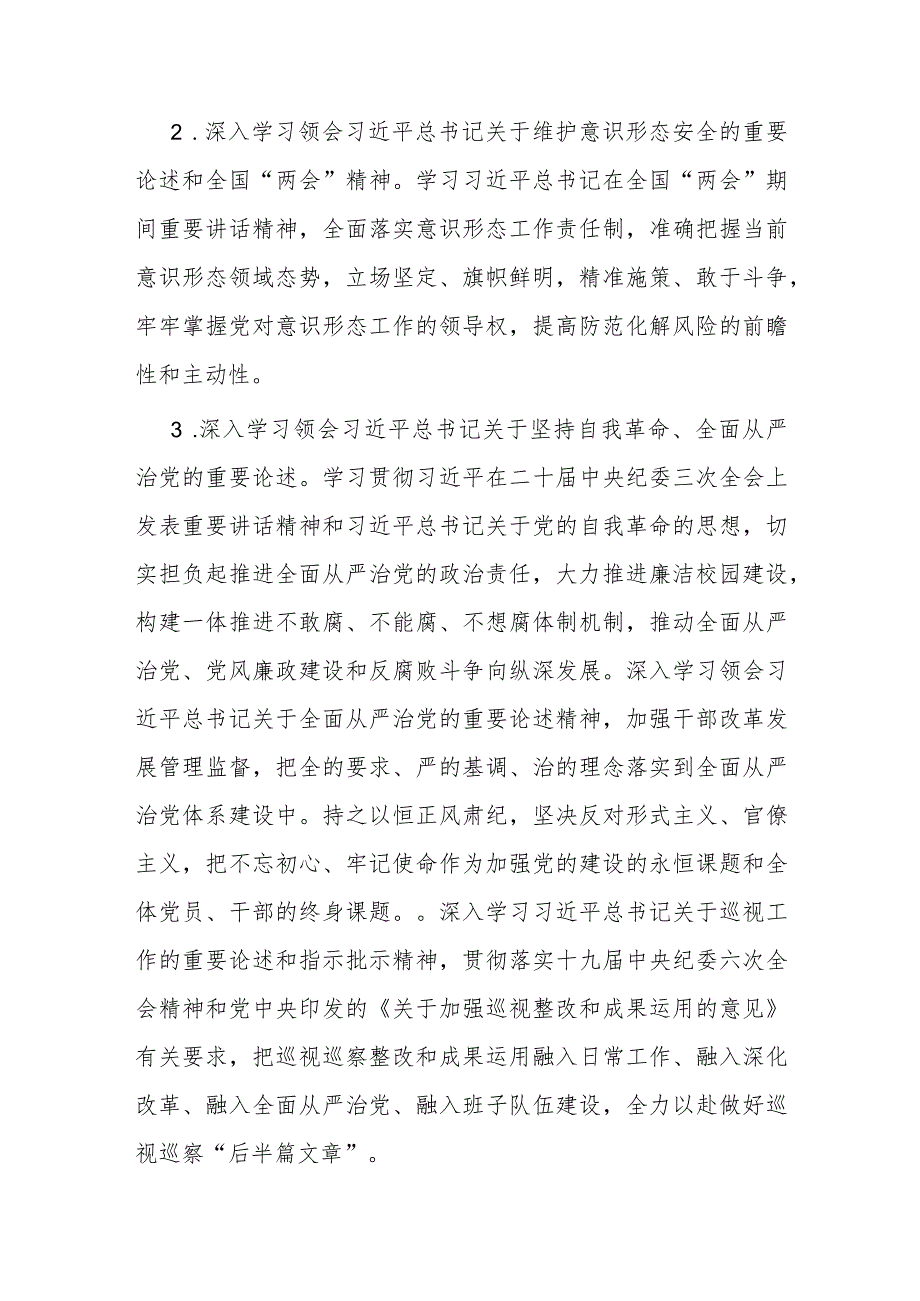 2 .深入学习领会习近平总书记关于维护意识形态安全的重要
论述和全国“两会”精神。学习习近平总书记在全国“两会”期
间重要讲话精神，全面落实意识形态工作责任制，准确把握当前
意识形态领域态势，立场坚定、旗帜鲜明，精准施策、敢于斗争，
牢牢掌握党对意识形态工作的领导权，提高防范化解风险的前瞻
性和主动性。
3 .深入学习领会习近平总书记关于坚持自我革命、全面从严
治党的重要论述。学习贯彻习近平在二十届中央纪委三次全会上
发表重要讲话精神和习近平总书记关于党的自我革命的思想，切
实担负起推进全面从严治党的政治责任，大力推进廉洁校园建设，
构建一体推进不敢腐、不能腐、不想腐体制机制，推动全面从严
治党、党风廉政建设和反腐败斗争向纵深发展。深入学习领会习
近平总书记关于全面从严治党的重要论述精神，加强干部改革发
展管理监督，把全的要求、严的基调、治的理念落实到全面从严
治党体系建设中。持之以恒正风肃纪，坚决反对形式主义、官僚
主义，把不忘初心、牢记使命作为加强党的建设的永恒课题和全
体党员、干部的终身课题。。深入学习习近平总书记关于巡视工
作的重要论述和指示批示精神，贯彻落实十九届中央纪委六次全
会精神和党中央印发的《关于加强巡视整改和成果运用的意见》
有关要求，把巡视巡察整改和成果运用融入日常工作、融入深化
改革、融入全面从严治党、融入班子队伍建设，全力以赴做好巡
视巡察“后半篇文章”。